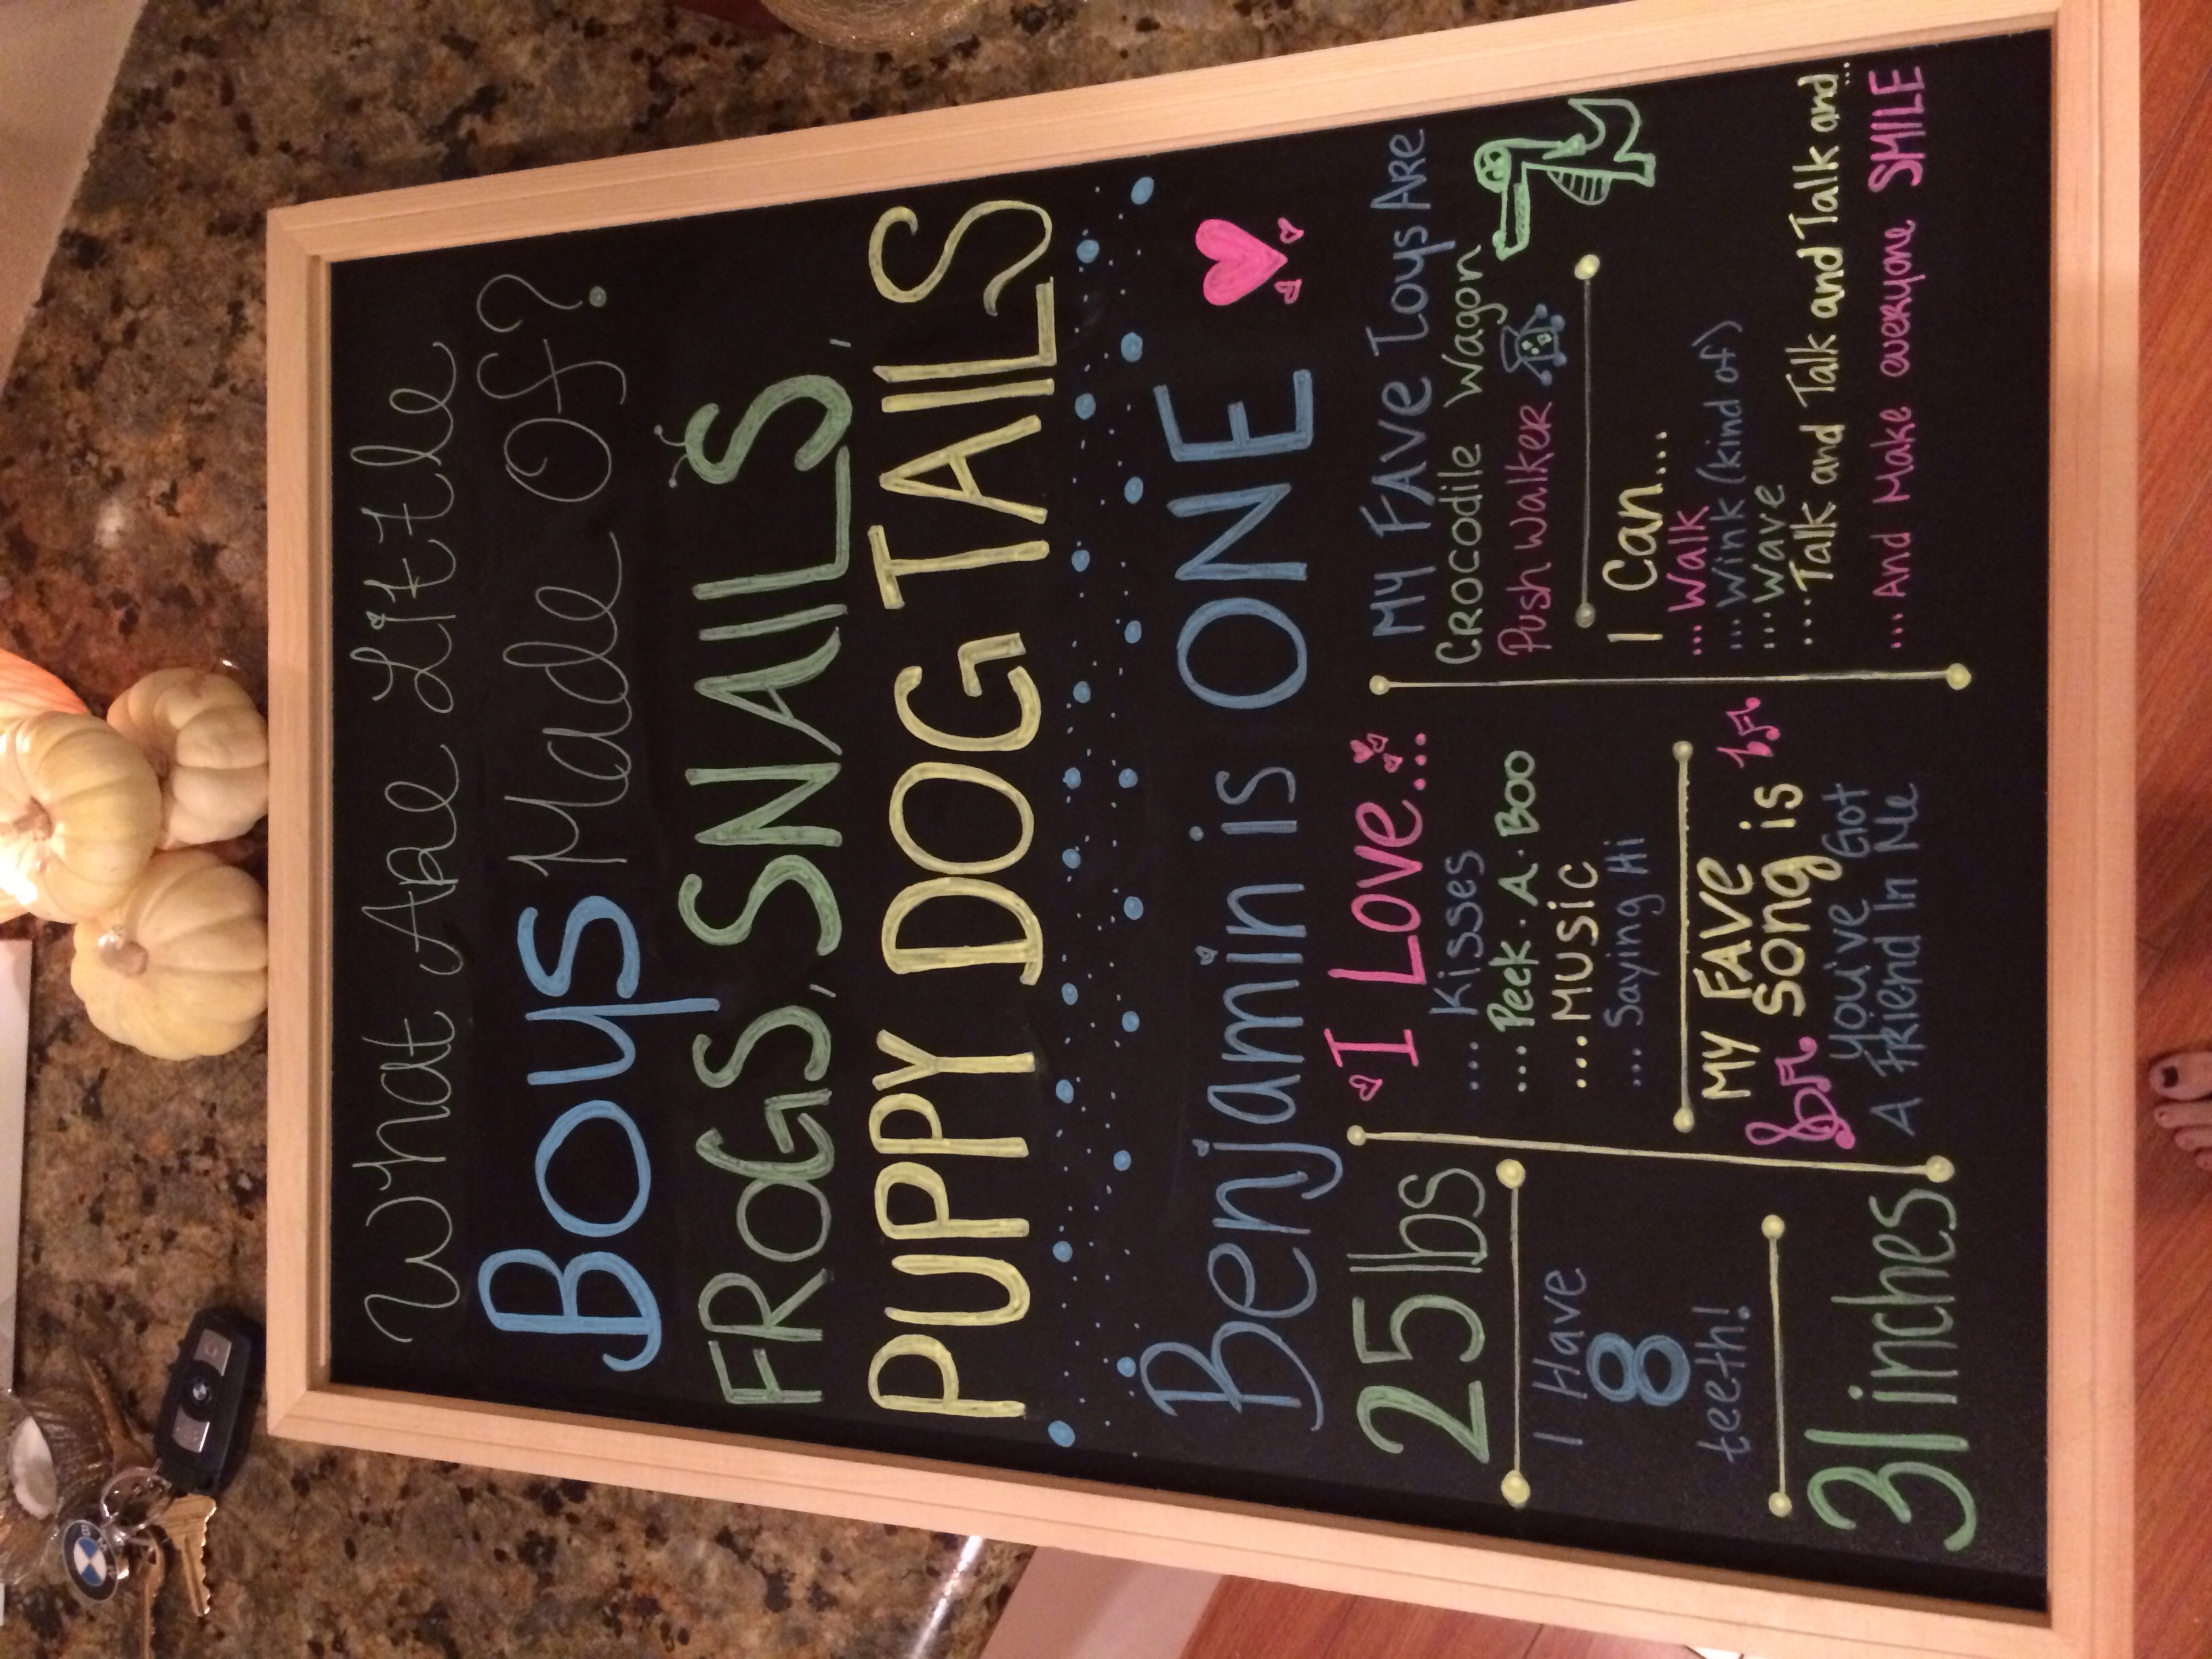 What Are Little
Boys Made Of?
FROGS, SNAILS,
PUPPY DOG TAILS
Benjamin is ONE
25 lbs
I Have
8
teeth!
31 inches
I Love...
... Kisses
... Peek. A. Boo
... MUSIC
... Saying Hi
MY FAVE
song is
You've Got
A Friend In Me
MY FAVE Toys ARE
CROCODILE Wagon
Push Walker
I Can...
... Walk
... Wink (kind of)
... Wave
... Talk and Talk and Talk and Talk and...
... And Make everyone SMILE